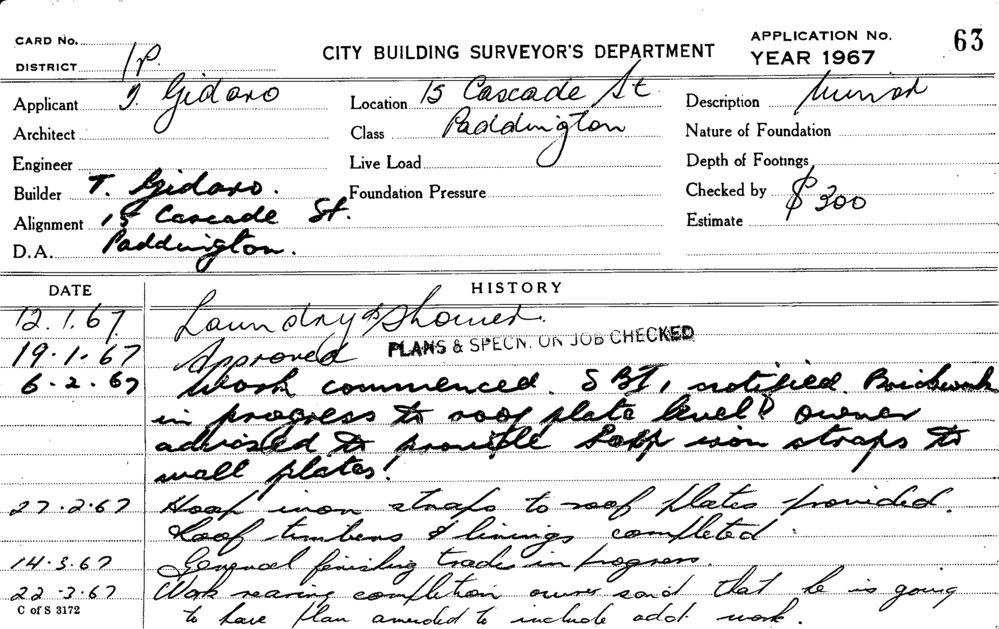 CARD No.
DISTRICT 1P.
CITY BUILDING SURVEYOR'S DEPARTMENT
APPLICATION No. 63
YEAR 1967
Applicant T. Gidaro
Location 15 Cascade St
Description
Architect
Class Paddington
Nature of Foundation
Engineer
Live Load
Depth of Footings
Builder T. Gidaro.
Foundation Pressure
Checked by
Alignment 15 Cascade St.
Estimate $300
D.A. Paddington.
DATE HISTORY
12.1.67 Laundry & Shower.
19.1.67 Approved PLANS & SPECN. ON JOB CHECKED
6.2.67 Work commenced. S.B.I. notified. Brickwork
in progress to roof plate level! owner
advised to provide hoop iron straps to
wall plates!
27.2.67 Hoop iron straps to roof plates provided.
Roof timbers & linings completed.
14.3.67 General finishing trades in progress.
22.3.67 Work nearing completion owner said that he is going
to have plan amended to include add. work.
C of S 3172